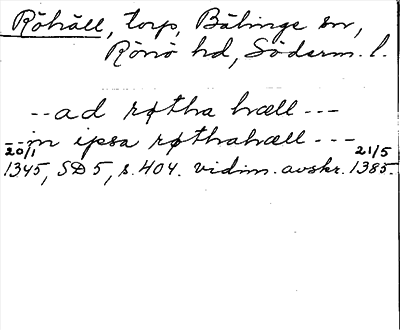 Röhäll, torp, Bälinge sn,
Rönö hd, Söderm. l.
-- ad røtha hæll ---
--in ipsa røthahæll ---
20/1 21/5
1345, SD 5, s. 404. vidim. avskr. 1385.